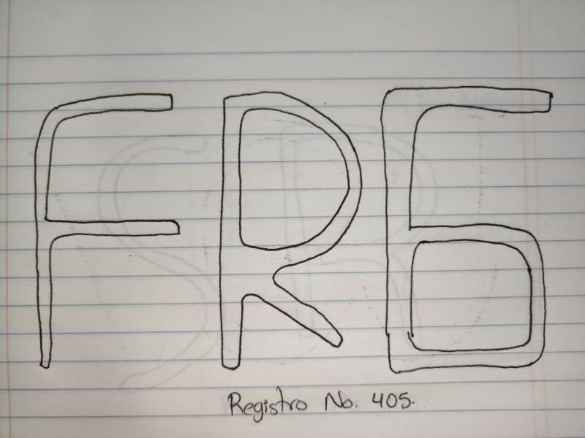 FR6
Registro No. 405.